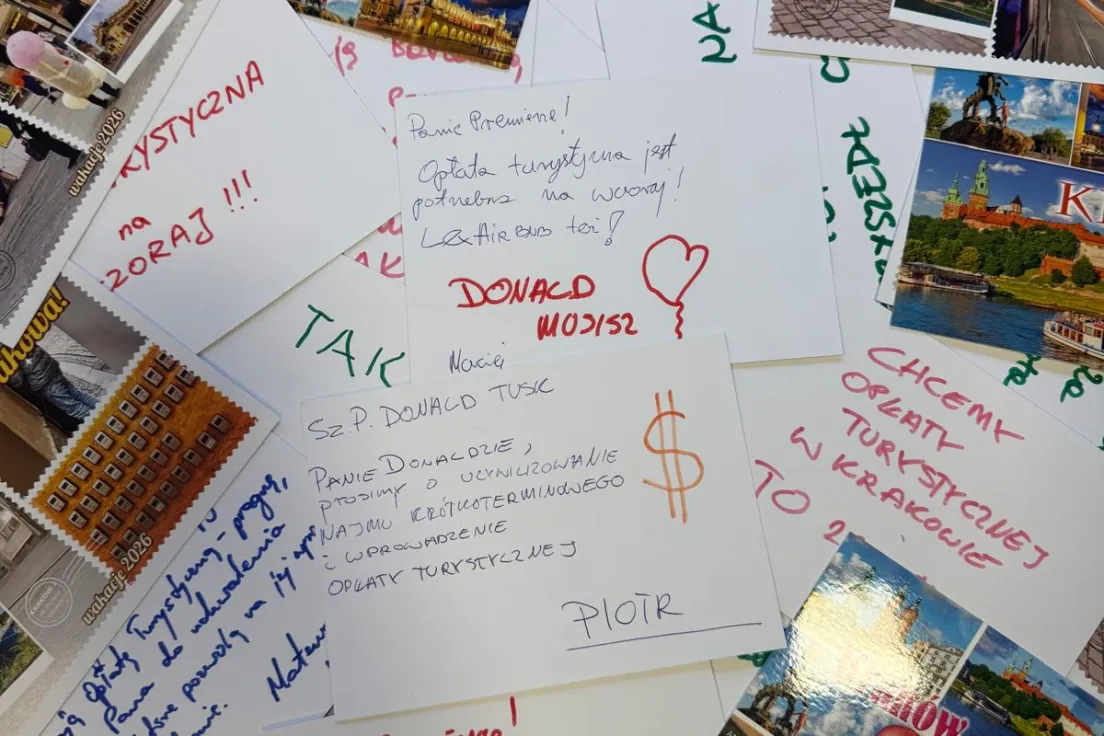 wakacje2026
RYSTYCZNA
na
ZORAJ !!!
NA
Panie Premierze!
Opłata turystyczna jest
potrzebna na wczoraj!
Lex AirBNB też!
DONALD
MUSISZ
Maciej
TAK
Sz.P. DONALD TUSK
PANIE DONALDZIE,
PROSIMY O UCYWILIZOWANIE
NAJMU KRÓTKOTERMINOWEGO
i WPROWADZENIE
OPŁATY TURYSTYCZNEJ
$
PIOTR
CHCEMY
OPŁATY
TURYSTYCZNEJ
W KRAKOWIE
TO
akowa!
wakacje 2026
KRAKÓW
turystyczną - proszę,
Pana do uchwalenia
pozwolą na jej
Mateu
K